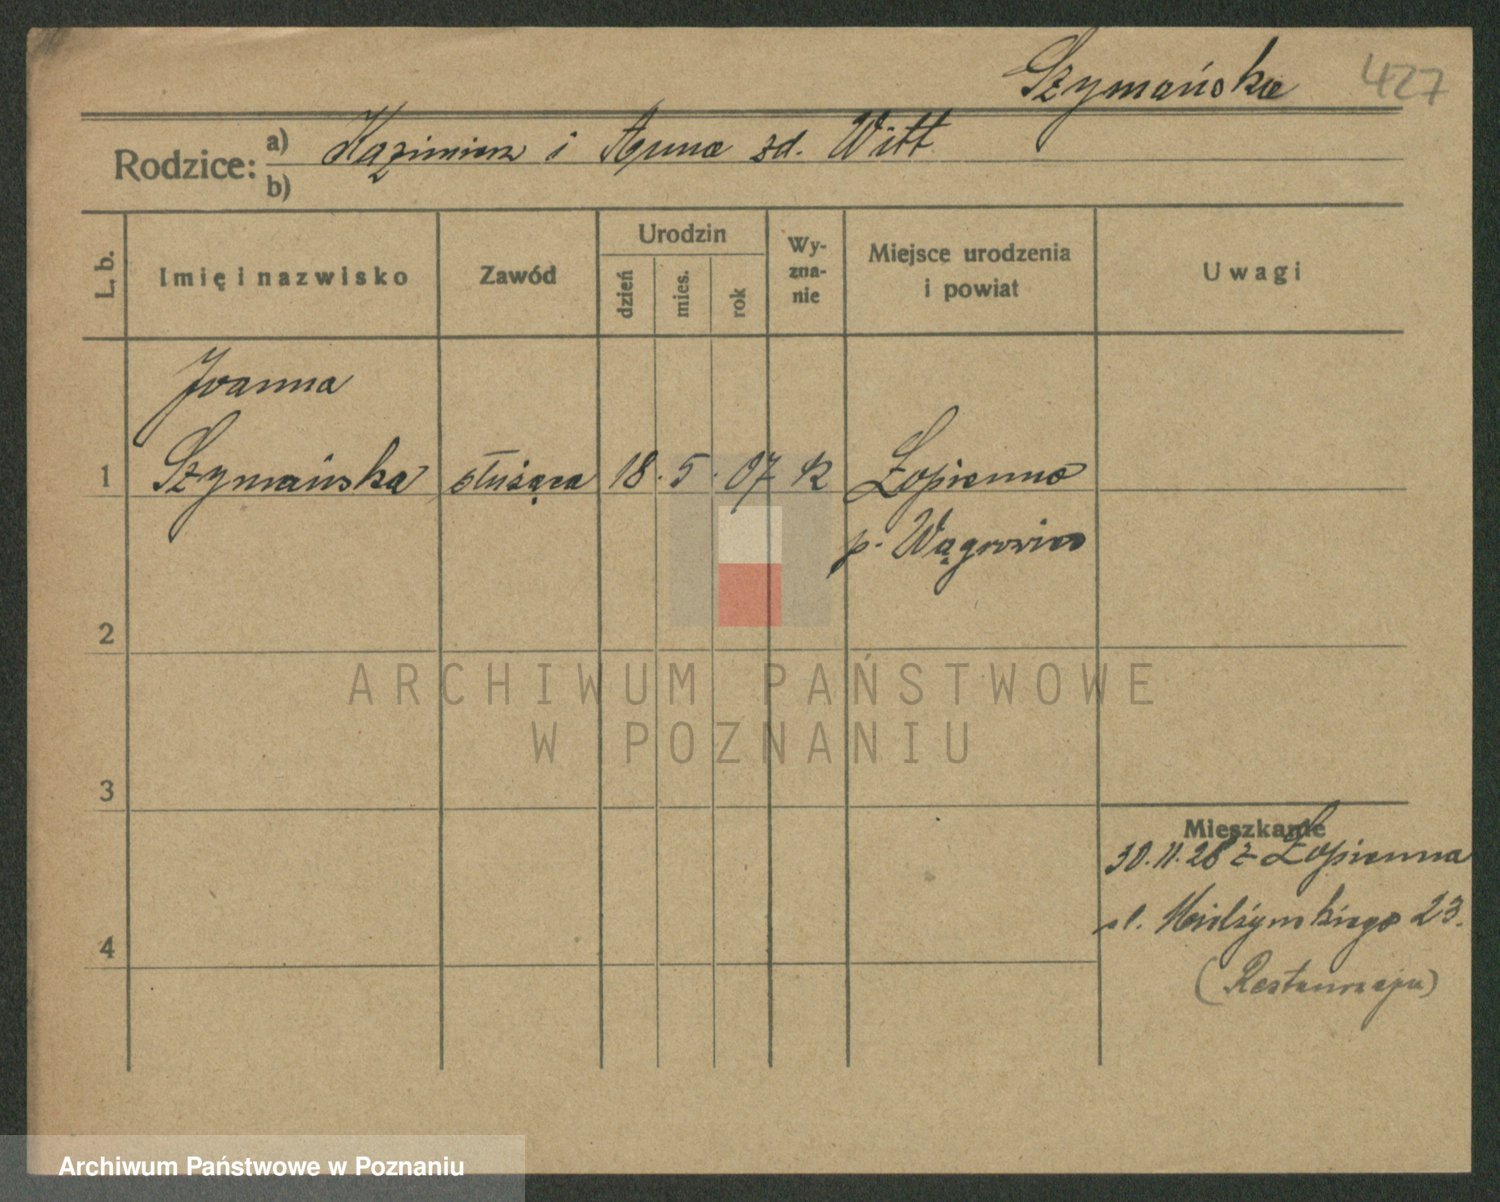 Szymańska 427
Rodzice: a) Kazimierz i Anna zd. Witt
b)
L. b. Imię i nazwisko Zawód Urodzin dzień mies. rok Wy-zna-nie Miejsce urodzenia i powiat Uwagi
Joanna
1 Szymańska służąca 18. 5. 07 k Łopienno
p. Wągrowiec
2
ARCHIWUM PAŃSTWOWE
W POZNANIU
3
Mieszkanie
30.11.26 z Łopienna
ul. Mielżyńskiego 23.
4
(Restauracja)
Archiwum Państwowe w Poznaniu